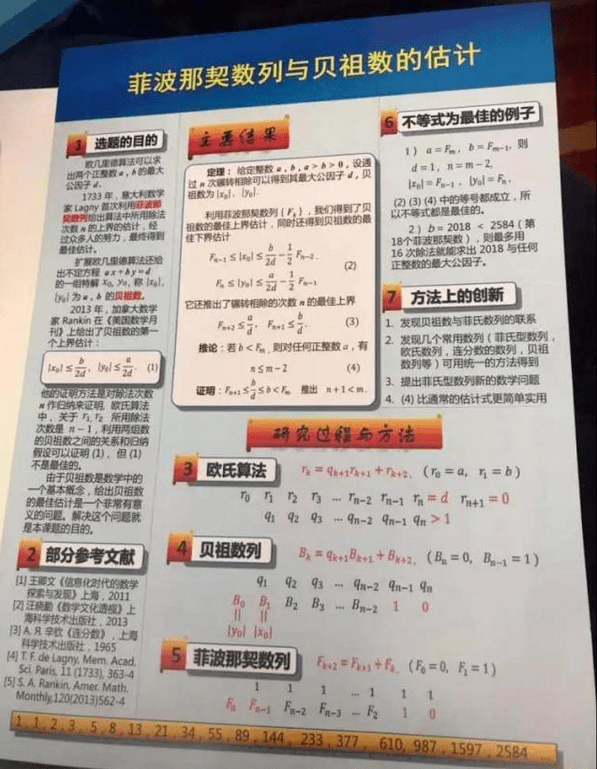 菲波那契数列与贝祖数的估计
1 选题的目的
欧几里德算法可以求
出两个正整数 a , b 的最大
公因子 d.
1733 年，意大利数学
家 Lagny 首次利用菲波那
契数列给出算法中所用除法
次数 n 的上界的估计，经
过众多人的努力，最终得到
最佳估计。
扩展欧几里德算法还给
出不定方程 ax + by = d
的一组特解 x₀, y₀, 称 |x₀|,
|y₀| 为 a , b 的贝祖数。
2013 年，加拿大数学
家 Rankin 在《美国数学月
刊》上给出了贝祖数的第一
个上界估计：
|x₀| ≤ b/2d, |y₀| ≤ a/2d. (1)
他的证明方法是对除法次数
n 作归纳来证明, 欧氏算法
中，关于 r₁, r₂ 所用除法
次数是 n − 1，利用两组数
的贝祖数之间的关系和归纳
假设可以证明 (1)、但 (1)
不是最佳的。
由于贝祖数是数学中的
一个基本概念，给出贝祖数
的最佳估计是一个非常有意
义的问题。解决这个问题就
是本课题的目的。
2 部分参考文献
[1] 王卿文《信息化时代的数学
探索与发现》上海，2011
[2] 汪晓勤《数学文化透视》上
海科学技术出版社，2013
[3] А. Я. 辛钦《连分数》，上海
科学技术出版社，1965
[4] T. F. de Lagny, Mem. Acad.
Sci. Paris, 11 (1733), 363-4
[5] S. A. Rankin, Amer. Math.
Monthly,120(2013)562-4
主要结果
定理： 给定整数 a , b , a > b > 0 , 设通
过 n 次辗转相除可以得到其最大公因子 d , 贝
祖数为 |x₀|, |y₀|.
利用菲波那契数列 {Fₖ} , 我们得到了贝
祖数的最佳上界估计，同时还得到贝祖数的最
佳下界估计
Fₙ₋₁ ≤ |x₀| ≤ b/2d − 1/2 Fₙ₋₂.
(2)
Fₙ ≤ |y₀| ≤ a/2d − 1/2 Fₙ₋₁
它还推出了辗转相除的次数 n 的最佳上界
Fₙ₊₂ ≤ a/d, Fₙ₊₁ ≤ b/d. (3)
推论：若 b < Fₘ, 则对任何正整数 a , 有
n ≤ m − 2 (4)
证明：Fₙ₊₁ ≤ b/d ≤ b < Fₘ 推出 n + 1 < m.
6 不等式为最佳的例子
1） a = Fₘ, b = Fₘ₋₁, 则
d = 1, n = m − 2,
|x₀| = Fₙ₋₁ , |y₀| = Fₙ,
(2) (3) (4) 中的等号都成立，所
以不等式都是最佳的。
2）b = 2018 < 2584（第
18个菲波那契数），则最多用
16 次除法就能求出 2018 与任何
正整数的最大公因子。
7 方法上的创新
1. 发现贝祖数与菲氏数列的联系
2. 发现几个常用数列（菲氏型数列，
欧氏数列，连分数的数列，贝祖
数列等）可用统一的方法得到
3. 提出菲氏型数列新的数学问题
4. (4) 比通常的估计式更简单实用
研究过程与方法
3 欧氏算法 rₖ = qₖ₊₁rₖ₊₁ + rₖ₊₂, (r₀ = a, r₁ = b)
r₀ r₁ r₂ r₃ ... rₙ₋₂ rₙ₋₁ rₙ = d rₙ₊₁ = 0
q₁ q₂ q₃ ... qₙ₋₂ qₙ₋₁ qₙ > 1
4 贝祖数列 Bₖ = qₖ₊₁Bₖ₊₁ + Bₖ₊₂, (Bₙ = 0, Bₙ₋₁ = 1)
q₁ q₂ q₃ ... qₙ₋₂ qₙ₋₁ qₙ
B₀ B₁ B₂ B₃ ... Bₙ₋₂ 1 0
|| ||
|y₀| |x₀|
5 菲波那契数列 Fₖ₊₂ = Fₖ₊₁ + Fₖ, (F₀ = 0, F₁ = 1)
1 1 1 ... 1 1 1
Fₙ Fₙ₋₁ Fₙ₋₂ Fₙ₋₃ ... F₂ 1 0
1 , 1 , 2 , 3 , 5 , 8 , 13 , 21 , 34 , 55 , 89 , 144 , 233 , 377 , 610, 987 , 1597 , 2584 ...